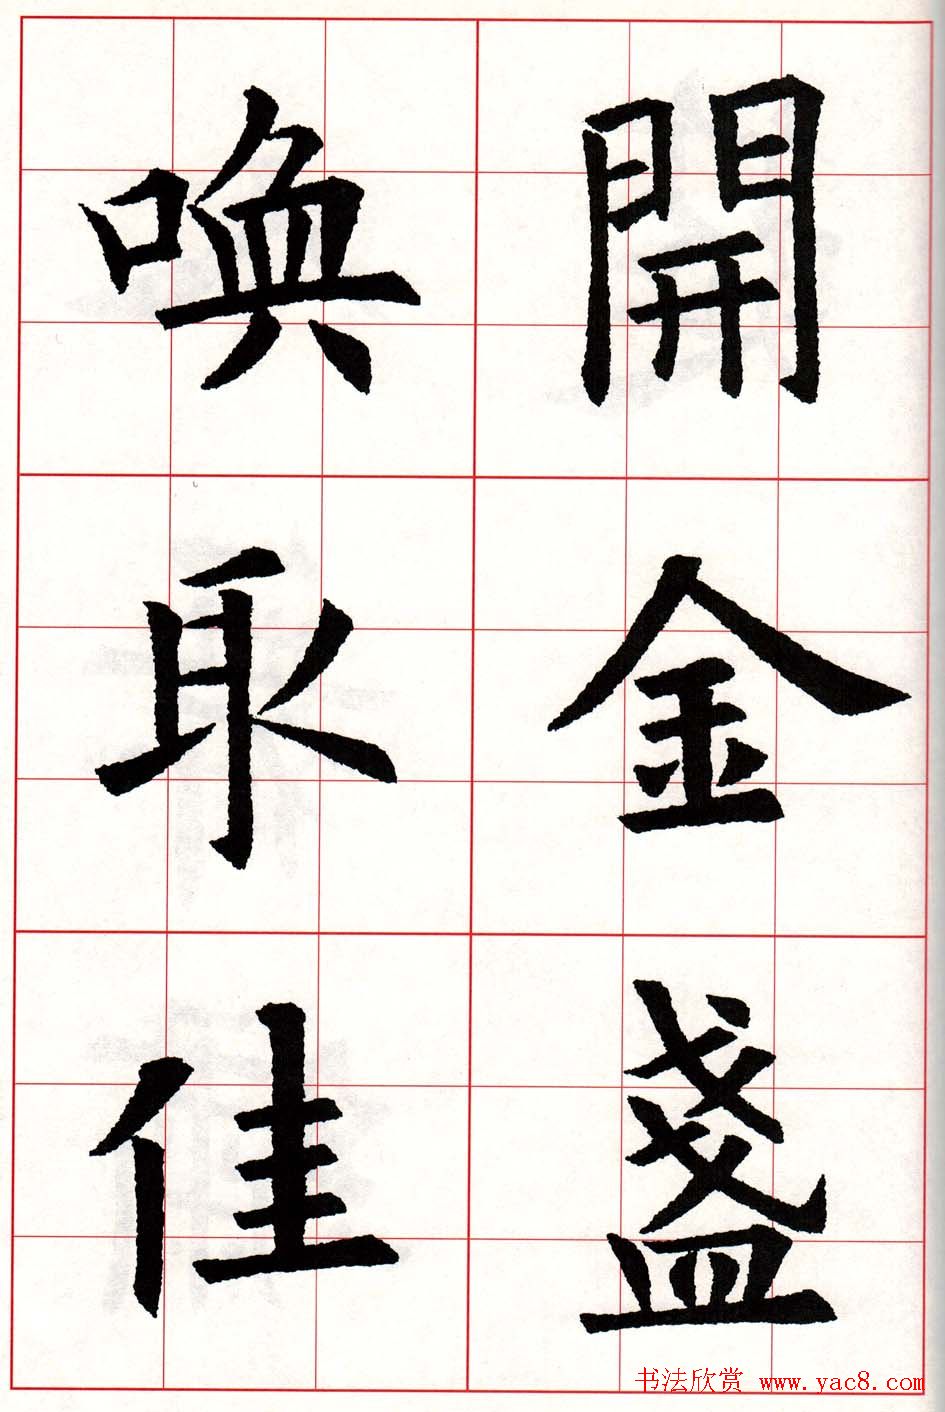 開金盞
喚取佳
书法欣赏 www.yac8.com